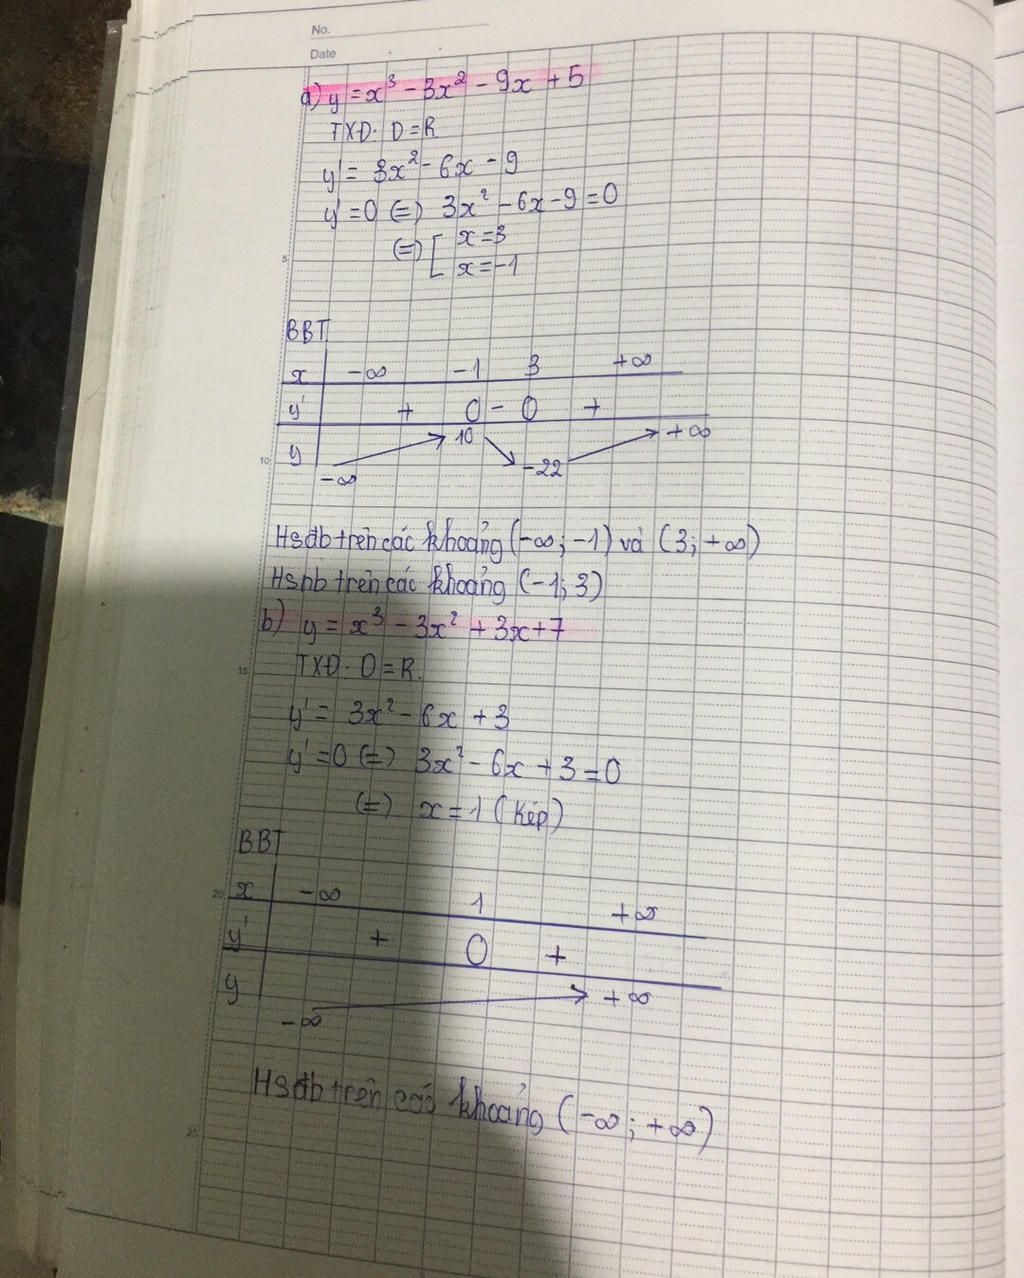 No.
Date
a) y = x³ - 3x² - 9x + 5
TXĐ: D = R
y' = 3x² - 6x - 9
y' = 0 (=) 3x² - 6x - 9 = 0
(=) [ x = 3
x = -1
5
BBT
x -∞ -1 3 +∞
y' + 0 - 0 +
y -∞ 10 -22 +∞
10
Hsđb trên các khoảng (-∞; -1) và (3; +∞)
Hsnb trên các khoảng (-1; 3)
b) y = x³ - 3x² + 3x + 7
15
TXĐ: D = R.
y' = 3x² - 6x + 3
y' = 0 (=) 3x² - 6x + 3 = 0
(=) x = 1 (kép)
BBT
20
x -∞ 1 +∞
y' + 0 +
y -∞ +∞
Hsđb trên các khoảng (-∞; +∞)
25